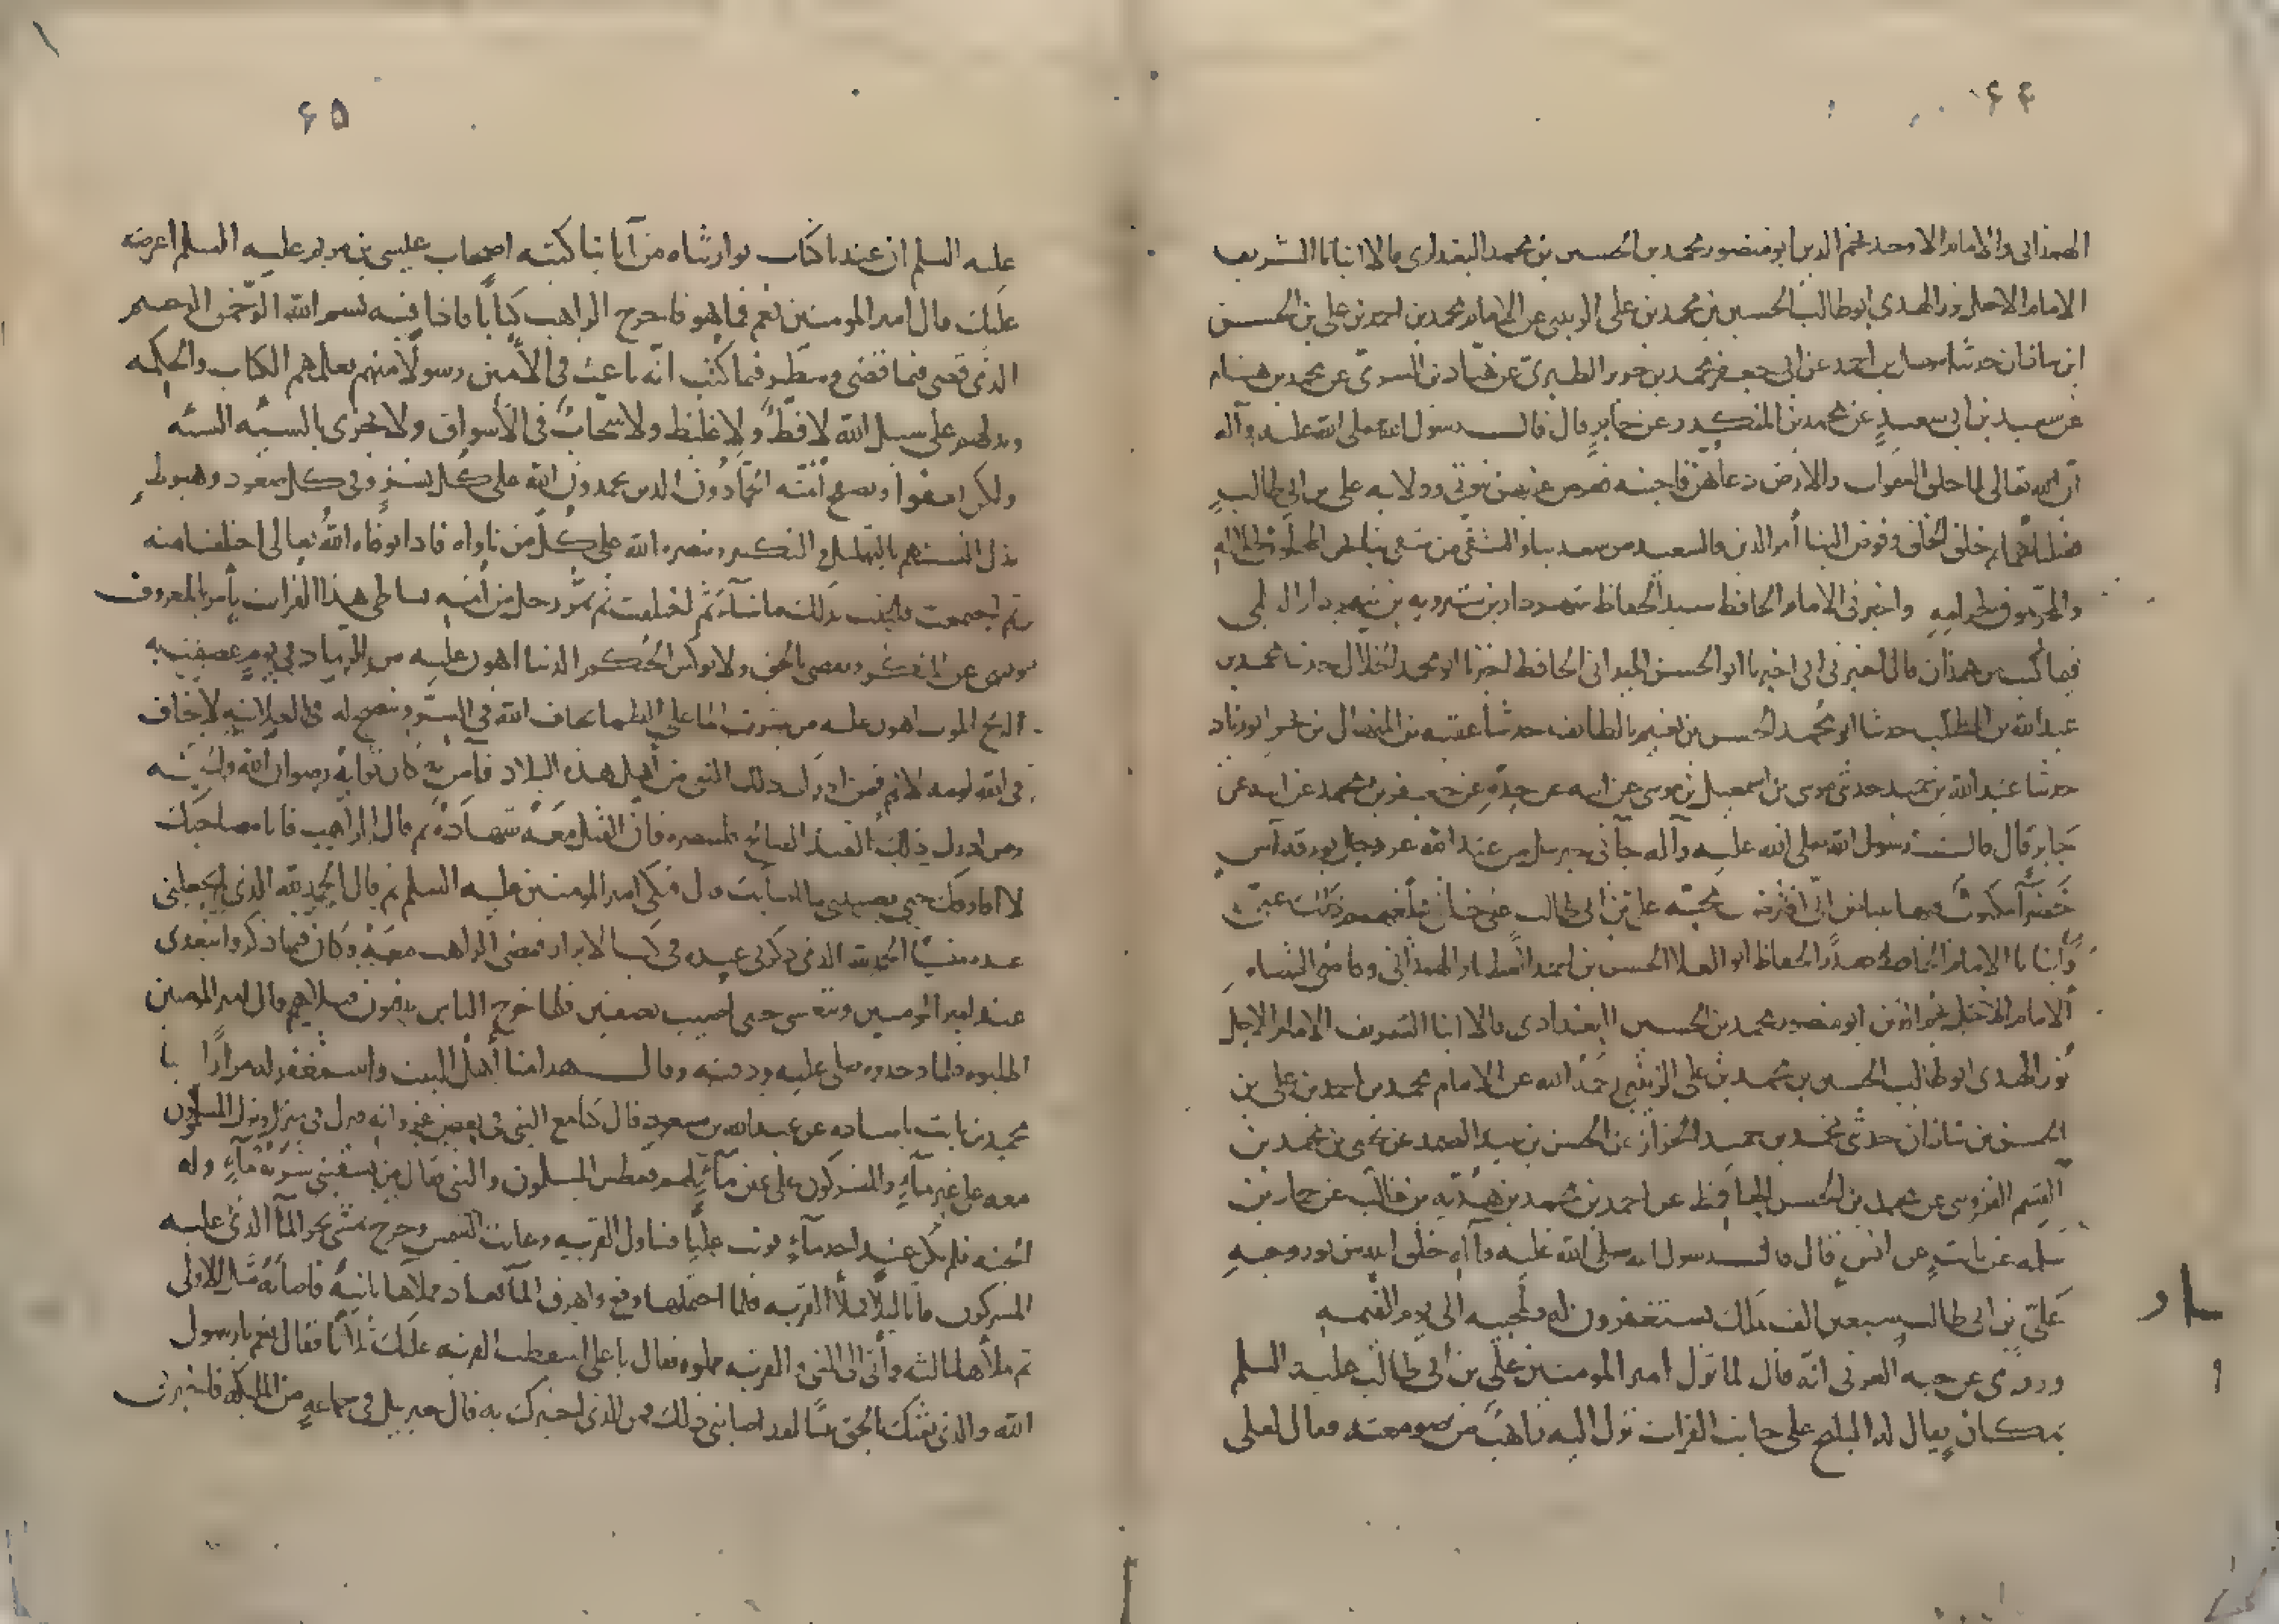 ۶۴
الهمذانی والامام الاوحد نجم الدین ابو منصور محمد بن الحسین بن محمد البغدادی قالا انبانا الشریف
الامام الاجل نور الهدی ابو طالب الحسین بن محمد بن علی الزینبی عن الامام محمد بن احمد بن علی بن الحسن
ابن شاذان حدثنا سهل بن احمد عن ابی جعفر محمد بن جریر الطبری عن هناد بن السری عن محمد بن هشام
عن سعید بن ابی سعید عن محمد بن المنکدر عن جابر قال قال رسول الله صلی الله علیه وآله
ان الله تعالی لما خلق السموات والارض دعاهن فاجبنه فعرض علیهن نبوتی وولایه علی بن ابی طالب
فقبلتهما ثم خلق الخلق وفوض الینا امر الدین فالسعید من سعد بنا والشقی من شقی بنا نحن المحلون لحلاله
والمحرمون لحرامه واخبرنی الامام الحافظ سید الحفاظ شهردار بن شیرویه بن شهردار الدیلمی
فیما کتب من همذان قال اخبرنی ابی اخبرنا ابو الحسن المیدانی الحافظ اخبرنا ابو محمد الخلال حدثنا محمد بن
عبدالله بن المطلب حدثنا ابو محمد الحسن بن نعیم بالطائف حدثنا عقبه بن المنهال بن بحر ابو زیاد
حدثنا عبدالله بن حمید حدثنی موسی بن اسمعیل بن موسی عن ابیه عن جده عن جعفر بن محمد عن ابیه عن
جابر قال قال رسول الله صلی الله علیه وآله جآنی جبریل من عند الله عز وجل بورقه آس
خضرآ مکتوب فیها ببیاض انی افترضت محبه علی بن ابی طالب علی خلقی فبلغهم ذلک عنی
وانبانا الامام الحافظ صدر الحفاظ ابو العلا الحسن بن احمد العطار الهمذانی وقاضی القضاه
الامام الاجل نجم الدین ابو منصور محمد بن الحسین البغدادی قالا انبا الشریف الامام الاجل
نور الهدی ابو طالب الحسین بن محمد بن علی الزینبی رحمه الله عن الامام محمد بن احمد بن علی بن
الحسن بن شاذان حدثنی محمد بن حمید الخزاز عن الحسن بن عبد الصمد عن یحیی بن محمد بن
القسم القزوینی عن محمد بن الحسن الحافظ عن احمد بن محمد بن هدبه بن غالب عن حماد بن
سلمه عن ثابت عن انس قال قال رسول الله صلی الله علیه وآله خلق الله من نور وجه
علی بن ابی طالب سبعین الف ملک یستغفرون له ولمحبیه الی یوم القیمه
وروی عن حبه العرنی انه قال لما نزل امیر المومنین علی بن ابی طالب علیه السلم
بمکان یقال له البلیخ علی جانب الفرات نزل الیه راهب من صومعته فقال لعلی
۶۵
علیه السلم ان عندنا کتاب توارثناه من آبائنا کتبه اصحاب عیسی بن مریم علیه السلم اعرضه
علیک قال امیر المومنین نعم فما هو فاخرج الراهب کتابا فاذا فیه بسم الله الرحمن الرحیم
الذی قضی فیما قضی وسطر فیما کتب انه باعث فی الامیین رسولا منهم یعلمهم الکتاب والحکمه
ویدلهم علی سبیل الله لا فظ ولا غلیظ ولا سخاب فی الاسواق ولا یجزی بالسیئه السیئه
ولکن یعفوا ویصفح امته الحمادون الذین یحمدون الله علی کل نشز وفی کل صعود وهبوط
تذل السنتهم بالتهلیل والتکبیر وینصره الله علی کل من ناواه فاذا توفاه الله تعالی اختلفت امته
ثم اجتمعت فلبثت بذلک ماشآء ثم اختلفت ثم یمر رجل من امته بشاطی هذا الفرات یامر بالمعروف
وینهی عن المنکر ویقضی بالحق ولا یوکس الحکم الدنیا اهون علیه من الرماد فی یوم عصفت به
الریح الموت اهون علیه من شرب الما علی الظما یخاف الله فی السر وینصح له فی العلانیه لا یخاف
فی الله لومه لائم فمن ادرک ذلک النبی من اهل هذه البلاد فآمن به کان ثوابه رضوان الله والجنه
ومن ادرک ذلک العبد الصالح فلینصره فان القتل معه شهاده ثم قال الراهب فانا مصاحبک
لا افارقک حتی یصیبنی ما اصابک قال فبکی امیر المومنین علیه السلم ثم قال الحمد لله الذی لم یجعلنی
عنده منسیا الحمد لله الذی ذکرنی عبده فی کتب الابرار فمضی الراهب معه وکان فیما ذکروا یتغدی
عند امیر المومنین ویتعشی حتی اصیب بصفین فلما خرج الناس یدفنون قتلاهم قال امیر المومنین
اطلبوه فلما وجدوه صلی علیه ودفنه وقال هذا منا اهل البیت واستغفر له مرارا
محمد بن ثابت باسناده عن عبدالله بن مسعود قال کنا مع النبی فی بعض غزواته فنزل فی منزل ونزل المسلمون
معه علی غیر مآء والمشرکون علی عین مآء لهم فعطش المسلمون والنبی فقال من یسقینی شربه مآء وله
الجنه فلم یکن عند احد مآء فوثب علیا فتناول القربه وعانق القمیص وخرج یمشی نحو المآ الذی علیه
المشرکون فاتا لیلا فملأ القربه فلما احتملها وقع واهرق المآ فعاد فملأها ثانیه فاصابه مثل الاولی
ثم ملأها الثالثه وأتی الی النبی والقربه مملوه فقال یا علی اسقطت القربه علیک ثلاثا فقال نعم یا رسول
الله والذی بعثک بالحق نبیا لقد اصابنی ذلک فمن الذی اخبرک به قال جبریل فی جماعه من الملائکه فاخبرنی